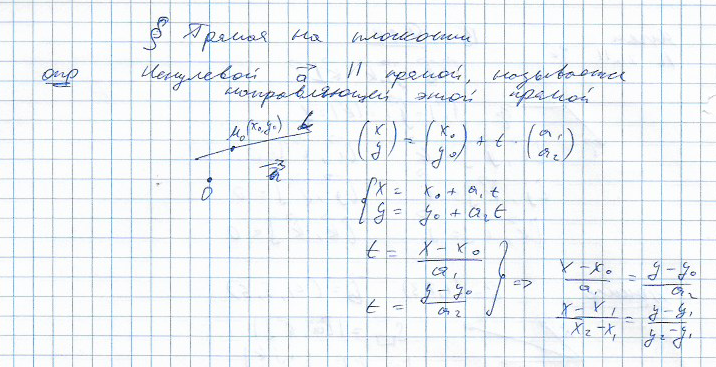 § Прямая на плоскости
опр Ненулевой a⃗ || прямой, называется
направляющей этой прямой
M₀(x₀,y₀)
a⃗
O
(x y) = (x₀ y₀) + t · (a₁ a₂)
{ x = x₀ + a₁t
y = y₀ + a₂t
t = (x - x₀)/a₁
t = (y - y₀)/a₂ } => (x - x₀)/a₁ = (y - y₀)/a₂
(x - x₁)/(x₂ - x₁) = (y - y₁)/(y₂ - y₁)